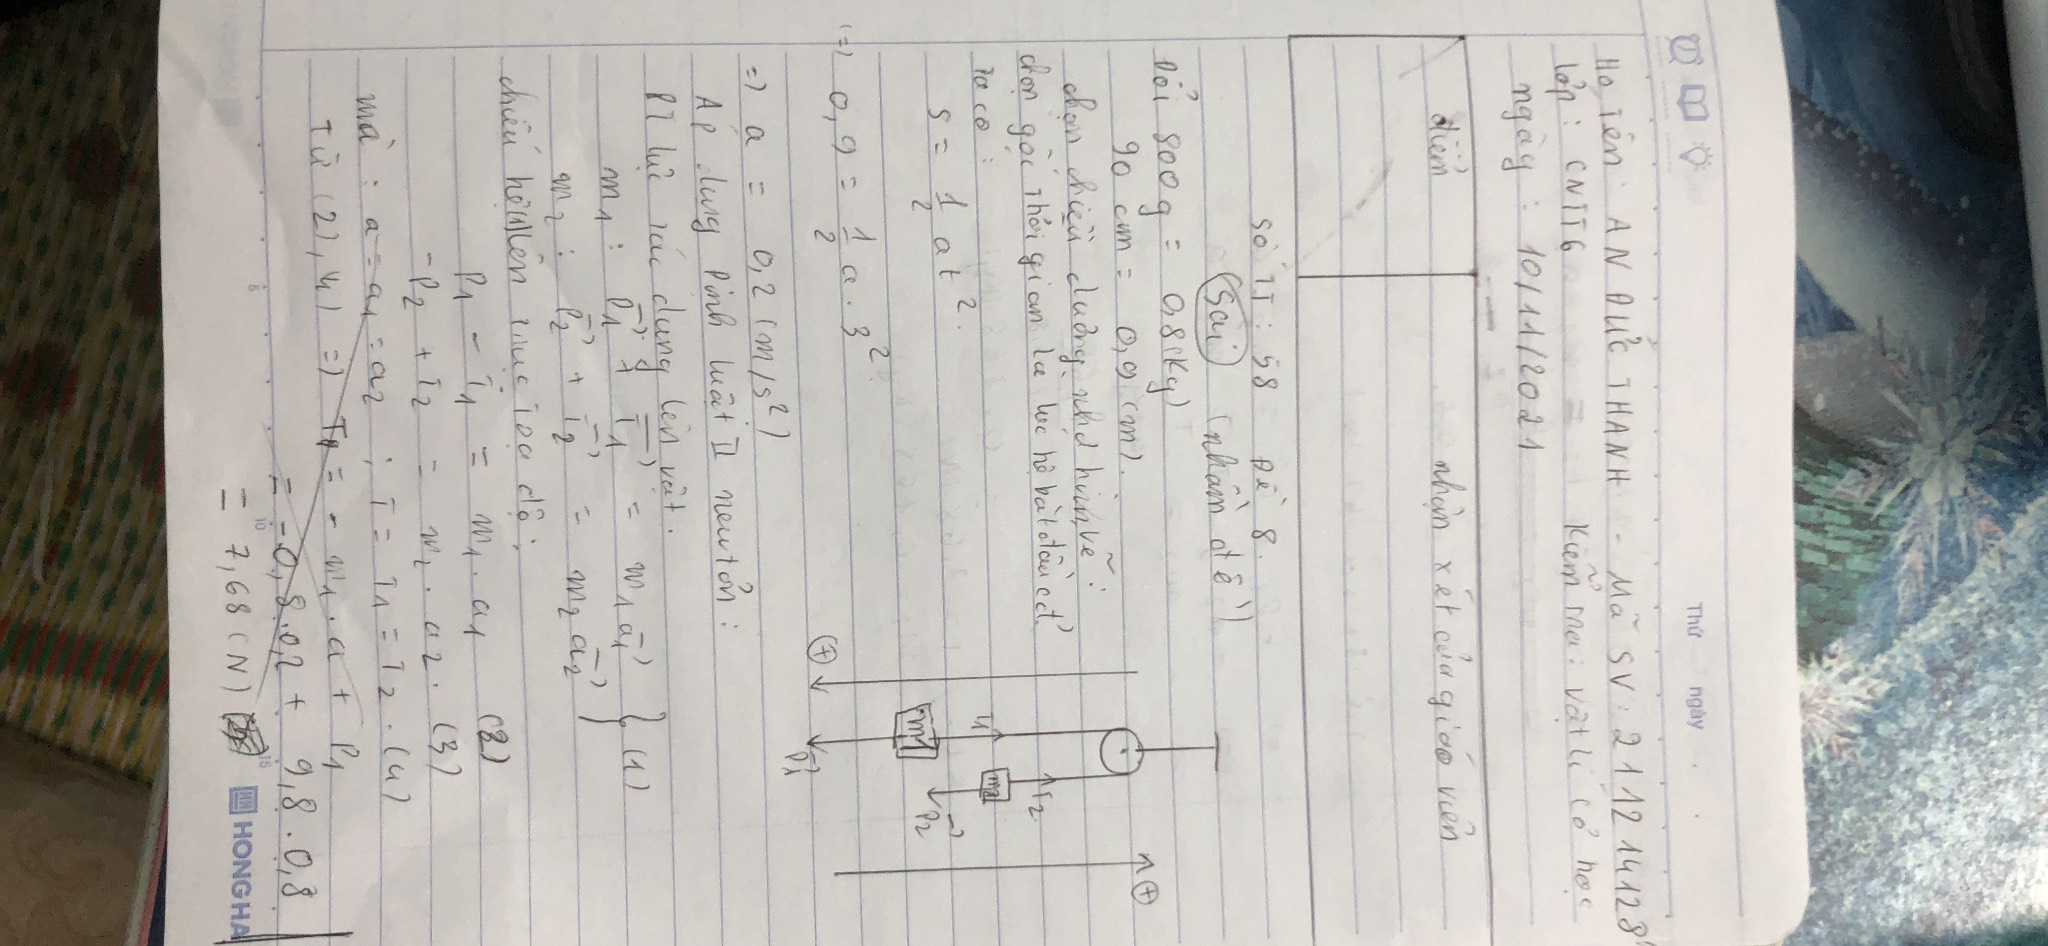 Thứ ngày
Họ Tên: AN ĐỨC THANH - Mã SV: 2112 14128
lớp: CNTT6 Kiểm tra: vật lí cơ học
ngày: 10/11/2021
điểm nhận xét của giáo viên
Số TT: 58 Đề 8.
Sai (nhầm đề)
Đổi 800g = 0,8(Kg)
90 cm = 0,9 (m).
chọn chiều dương như hình vẽ:
chọn gốc thời gian là lúc hệ bắt đầu cđ.
Ta có:
s = 1/2 at².
(=) 0,9 = 1/2 a . 3²
=) a = 0,2 (m/s²)
Áp dụng Định luật II newtơn:
PT lực tác dụng lên vật.
m₁ : P₁⃗ + T₁⃗ = m₁a₁⃗ } (1)
m₂ : P₂⃗ + T₂⃗ = m₂a₂⃗
chiếu hệ(1)lên trục toạ độ:
P₁ - T₁ = m₁. a₁ (2)
-P₂ + T₂ = m₂ . a₂. (3)
mà : a = a₁ = a₂ ; T = T₁ = T₂ . (4)
Từ (2), (4) =) T = - m₁ . a + P₁
= -0,8.0,2 + 9,8 . 0,8
= 7,68 (N)
+
T₂
m₂
T₁
P₂⃗
m₁
+
P₁⃗
5 10 15
HONG HA